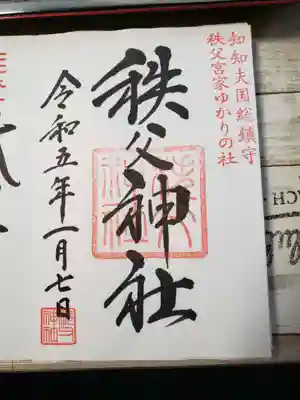 知知夫国総鎮守
秩父宮家ゆかりの社
秩父神社
令和五年一月七日